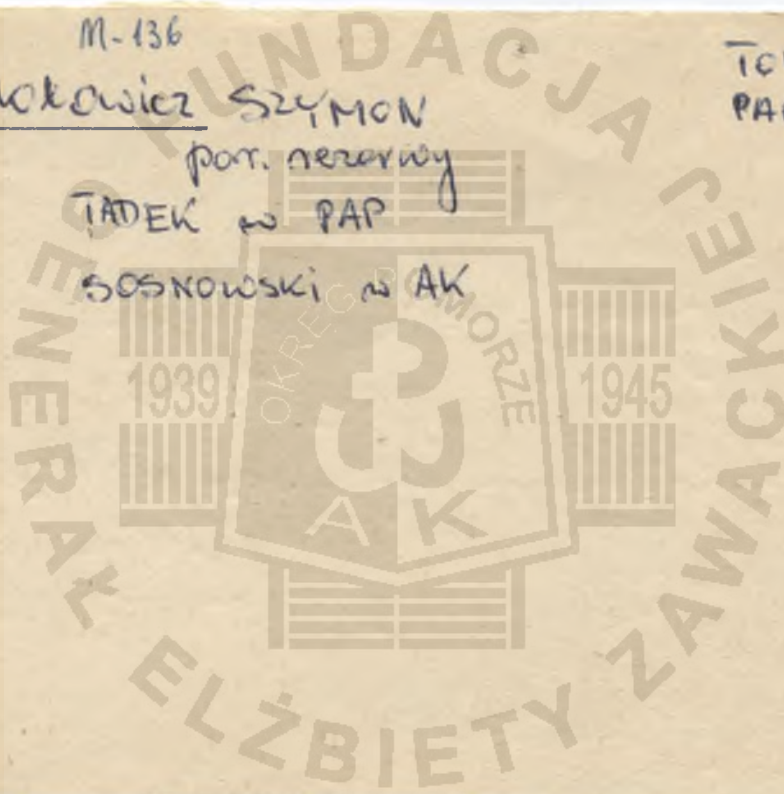 M-136
SZYMON
por. rezerwy
TADEK w PAP
SOSNOWSKI w AK
FUNDACJA
GENERAŁ ELŻBIETY ZAWACKIEJ
OKRĘG POMORZE
1939
1945
AK